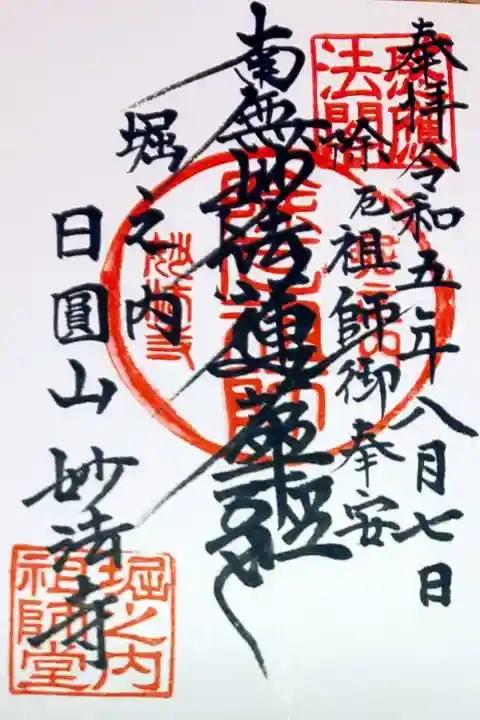 奉拝令和五年八月七日
除厄祖師御奉安
南無妙法蓮華経
堀之内
日圓山 妙法寺
除厄祖師
妙法寺
堀之内
祖師堂